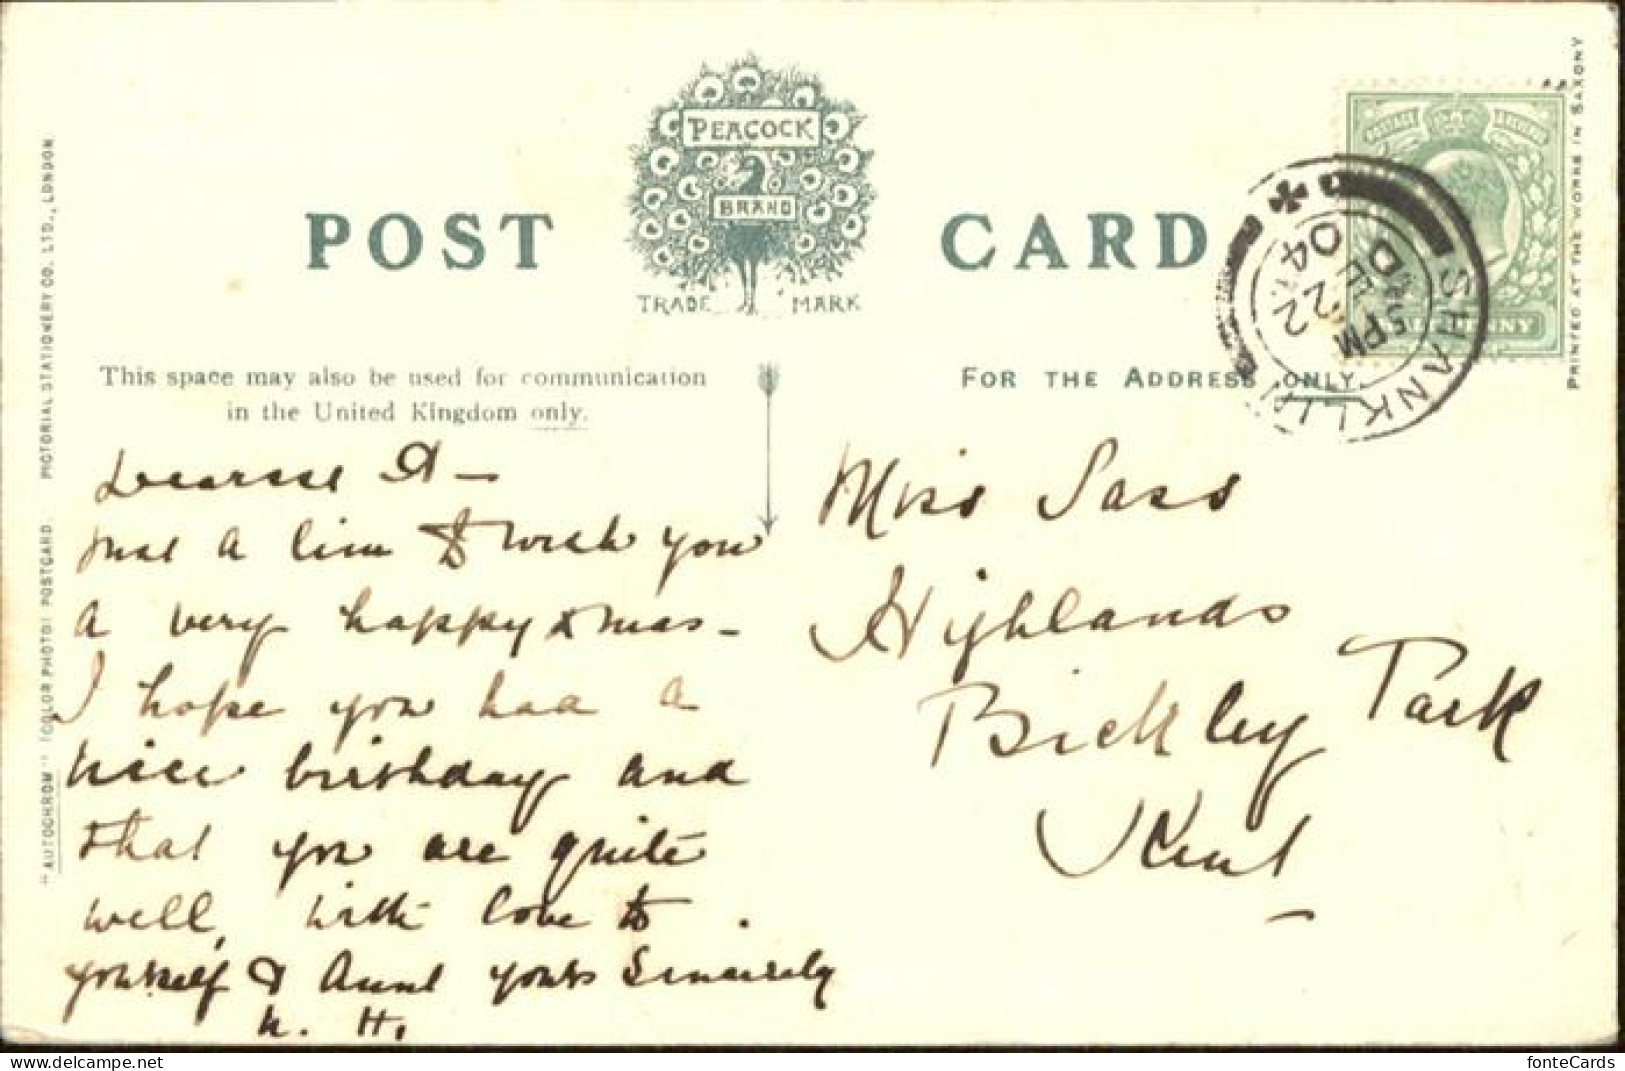 POST CARD
PEACOCK
BRAND
TRADE MARK
This space may also be used for communication
in the United Kingdom only.
FOR THE ADDRESS ONLY.
POSTAGE REVENUE
SHANKLIN
5 PM
DE 22
04
2
Dearest A –
Just a line to wish you
a very happy Xmas –
I hope you had a
nice birthday and
that you are quite
well, with love to
yourself & Aunt yours Sincerely
N. H.
Miss Sass
Highlands
Bickley Park
Kent
"AUTOCHROM" (COLOR PHOTO) POSTCARD. PICTORIAL STATIONERY CO. LTD., LONDON
PRINTED AT THE WORKS IN SAXONY
www.delcampe.net
fonteCards